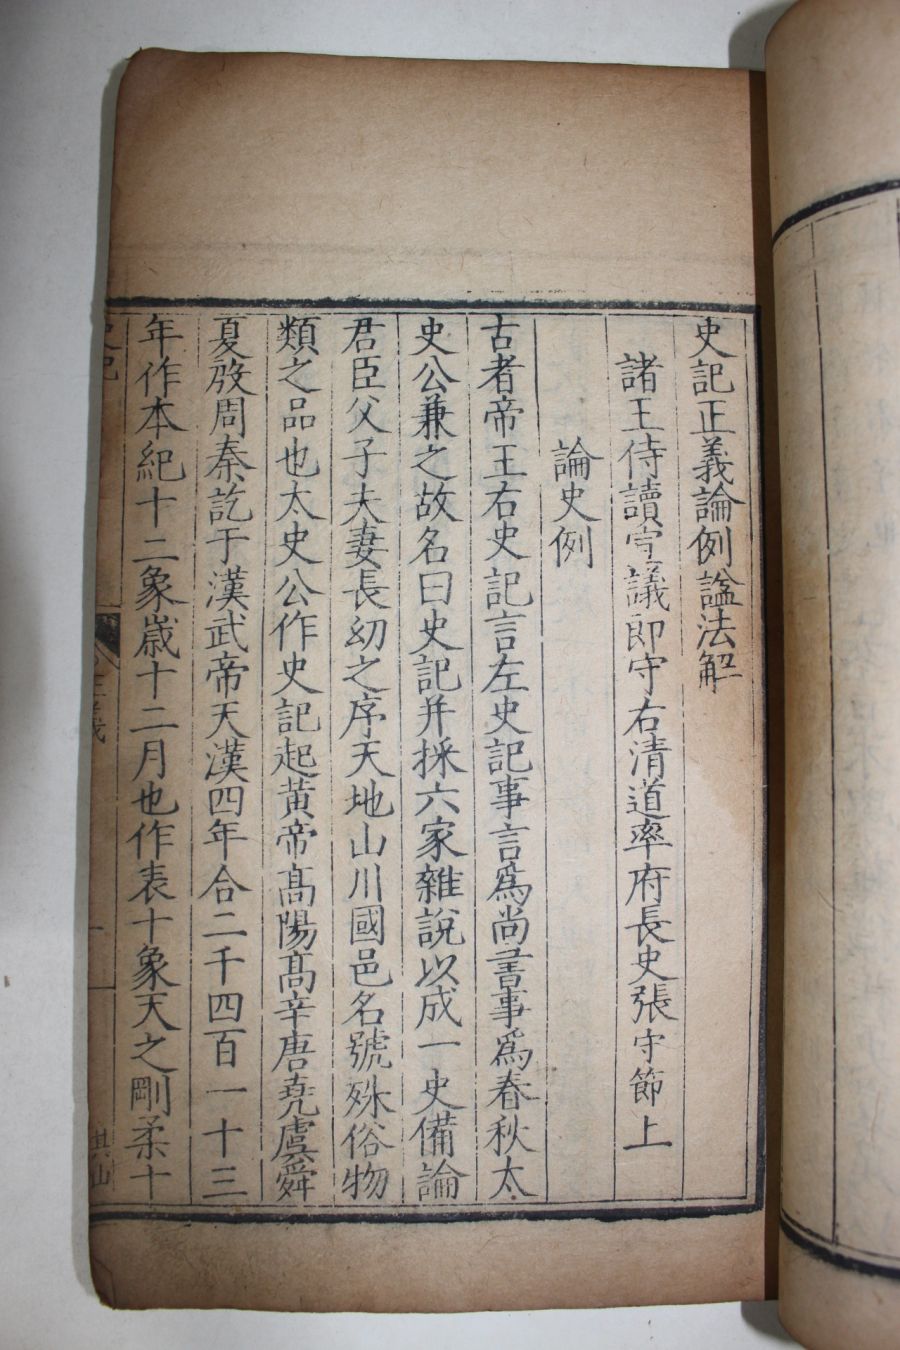 史記正義論例謚法解
諸王侍讀宣議郎守右清道率府長史張守節上
論史例
古者帝王右史記言左史記事言爲尚書事爲春秋太
史公兼之故名曰史記并採六家雜說以成一史備論
君臣父子夫妻長幼之序天地山川國邑名號殊俗物
類之品也太史公作史記起黃帝髙陽髙辛唐堯虞舜
夏殷周秦訖于漢武帝天漢四年合二千四百一十三
年作本紀十二象歲十二月也作表十象天之剛柔十
史記
正義
一